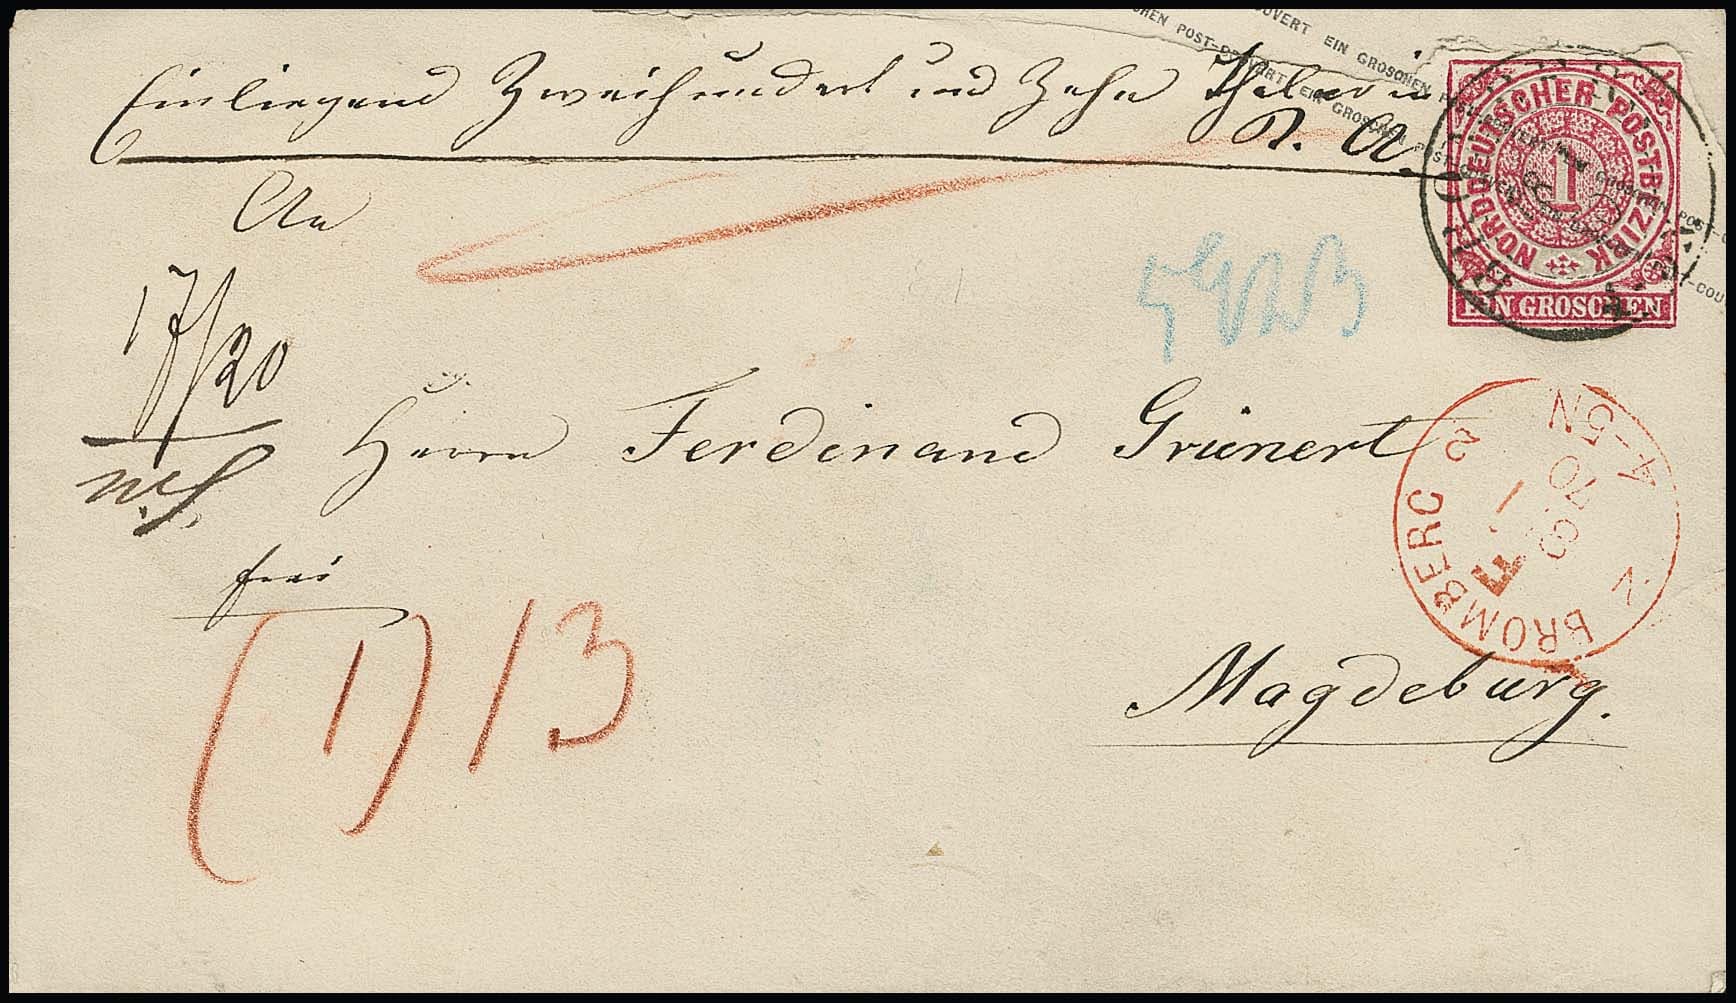 Einliegend Zweihundert und Zehn Thaler in
P. A.
POST-COUVERT EIN GROSCHEN POST-COUVERT EIN GROSCHEN
NORDDEUTSCHER POSTBEZIRK
1
EIN GROSCHEN
An
17/20
Herrn Ferdinand Grünert
frei
(1) 13
BROMBERG 2
N
1
70
8
4-5N
Magdeburg.